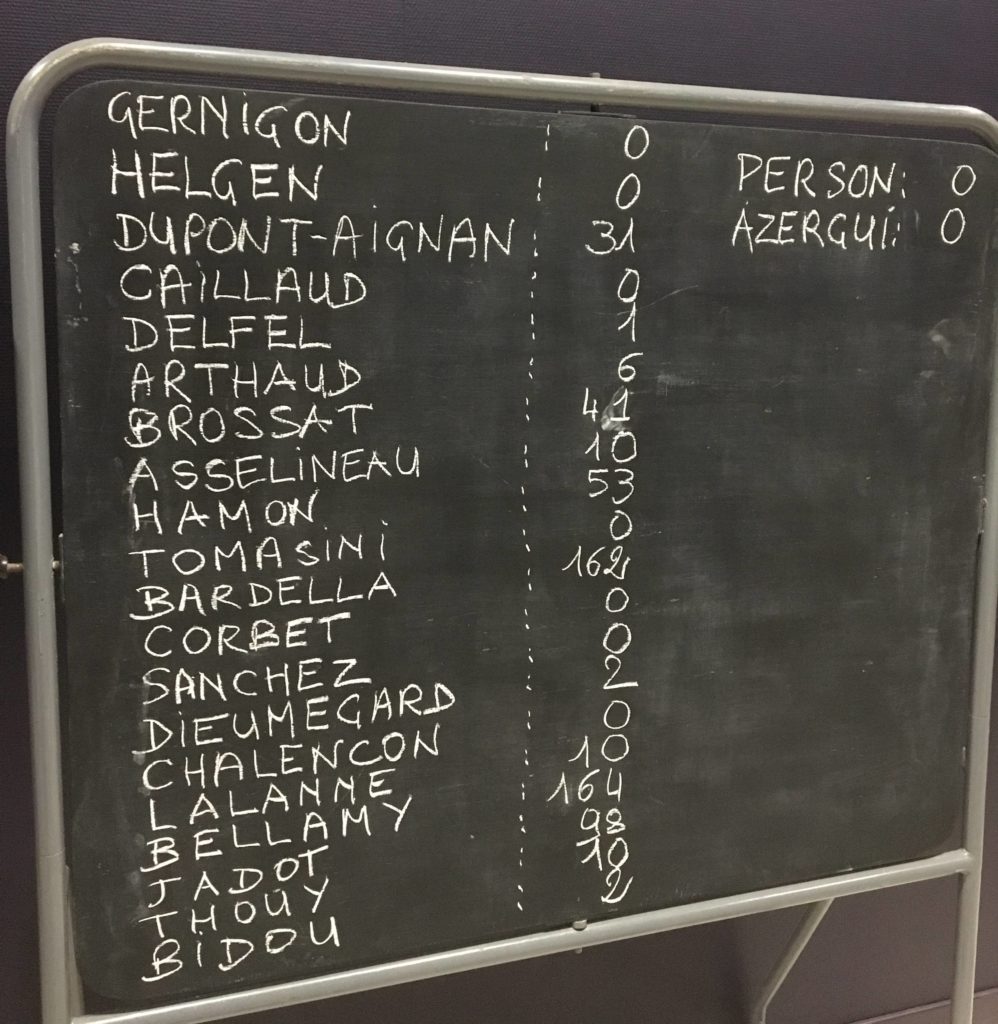 GERNIGON 0
HELGEN 0
DUPONT-AIGNAN 31
CAILLAUD 0
DELFEL 1
ARTHAUD 6
BROSSAT 41
ASSELINEAU 10
HAMON 53
TOMASINI 0
BARDELLA 162
CORBET 0
SANCHEZ 0
DIEUMEGARD 2
CHALENCON 0
LALANNE 10
BELLAMY 164
JADOT 98
THOUY 10
BIDOU 2
PERSON: 0
AZERGUI: 0